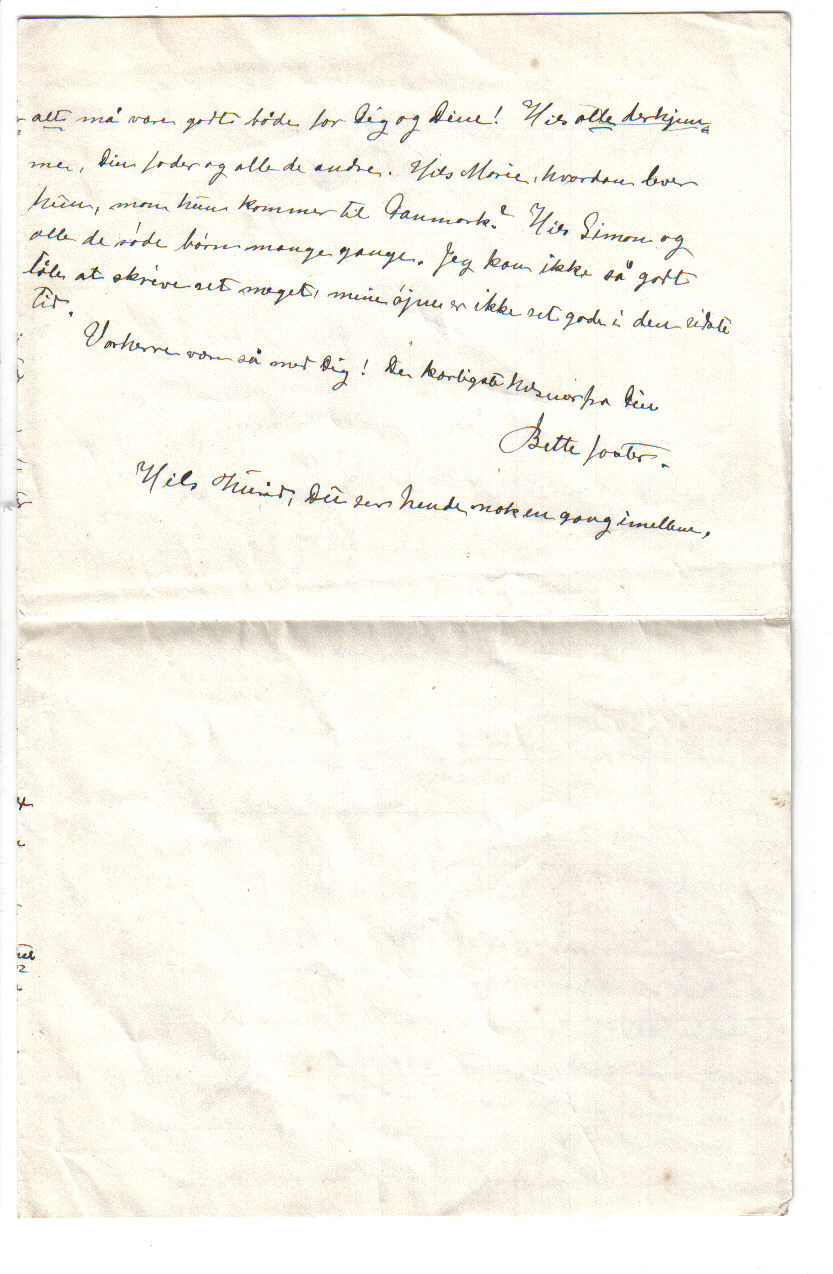 alt må være godt både for Dig og Dine! Hils alle derhjem=
me, Din fader og alle de andre. Hils Marie, hvordan lever
hun, mon hun kommer til Danmark? Hils Simon og
alle de søde børn mange gange. Jeg kan ikke så godt
tåle at skrive ret meget, mine øjne er ikke ret gode i den sidste
tid.
Vorherre være så med Dig! De kærligste hilsner fra Din
Bette faster.
Hils Thurid, Du ser hende nok en gang imellem.